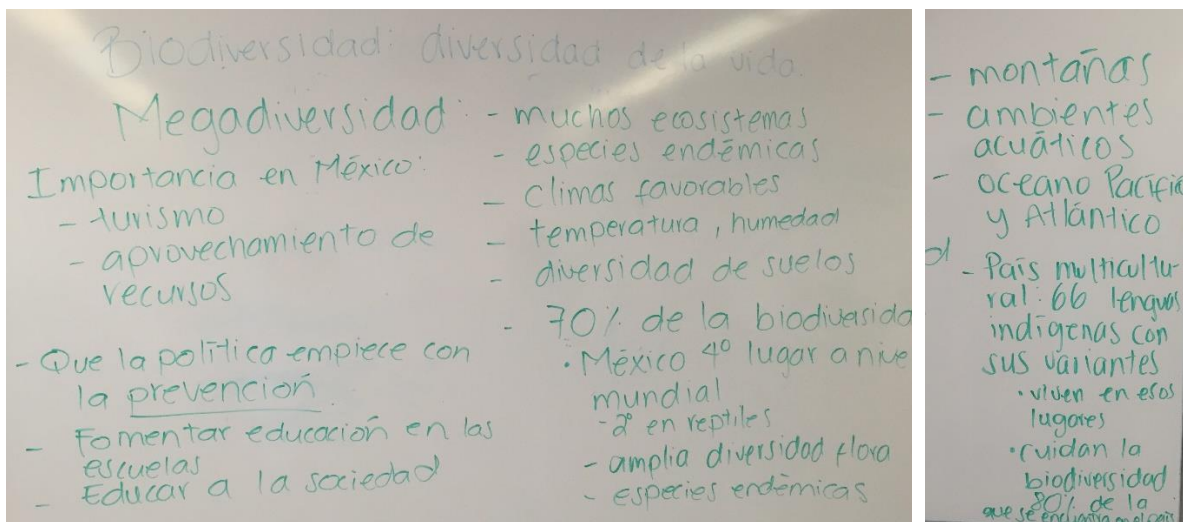 Biodiversidad: diversidad de la vida.
Megadiversidad:
Importancia en México:
- turismo
- aprovechamiento de
recursos
- Que la política empiece con
la prevención.
- Fomentar educación en las
escuelas
- Educar a la sociedad
- muchos ecosistemas
- especies endémicas
- climas favorables
- temperatura, humedad
- diversidad de suelos
- 70% de la biodiversida
· México 4º lugar a nive
mundial
- 2º en reptiles
- amplia diversidad flora
- especies endémicas
- montañas
- ambientes
acuáticos
- oceano Pacífic
y Atlántico
d
- País multicultu-
ral: 66 lenguas
indígenas con
sus variantes
· viven en esos
lugares
· cuidan la
biodiversidad
80% de la
que se encuentra en el país